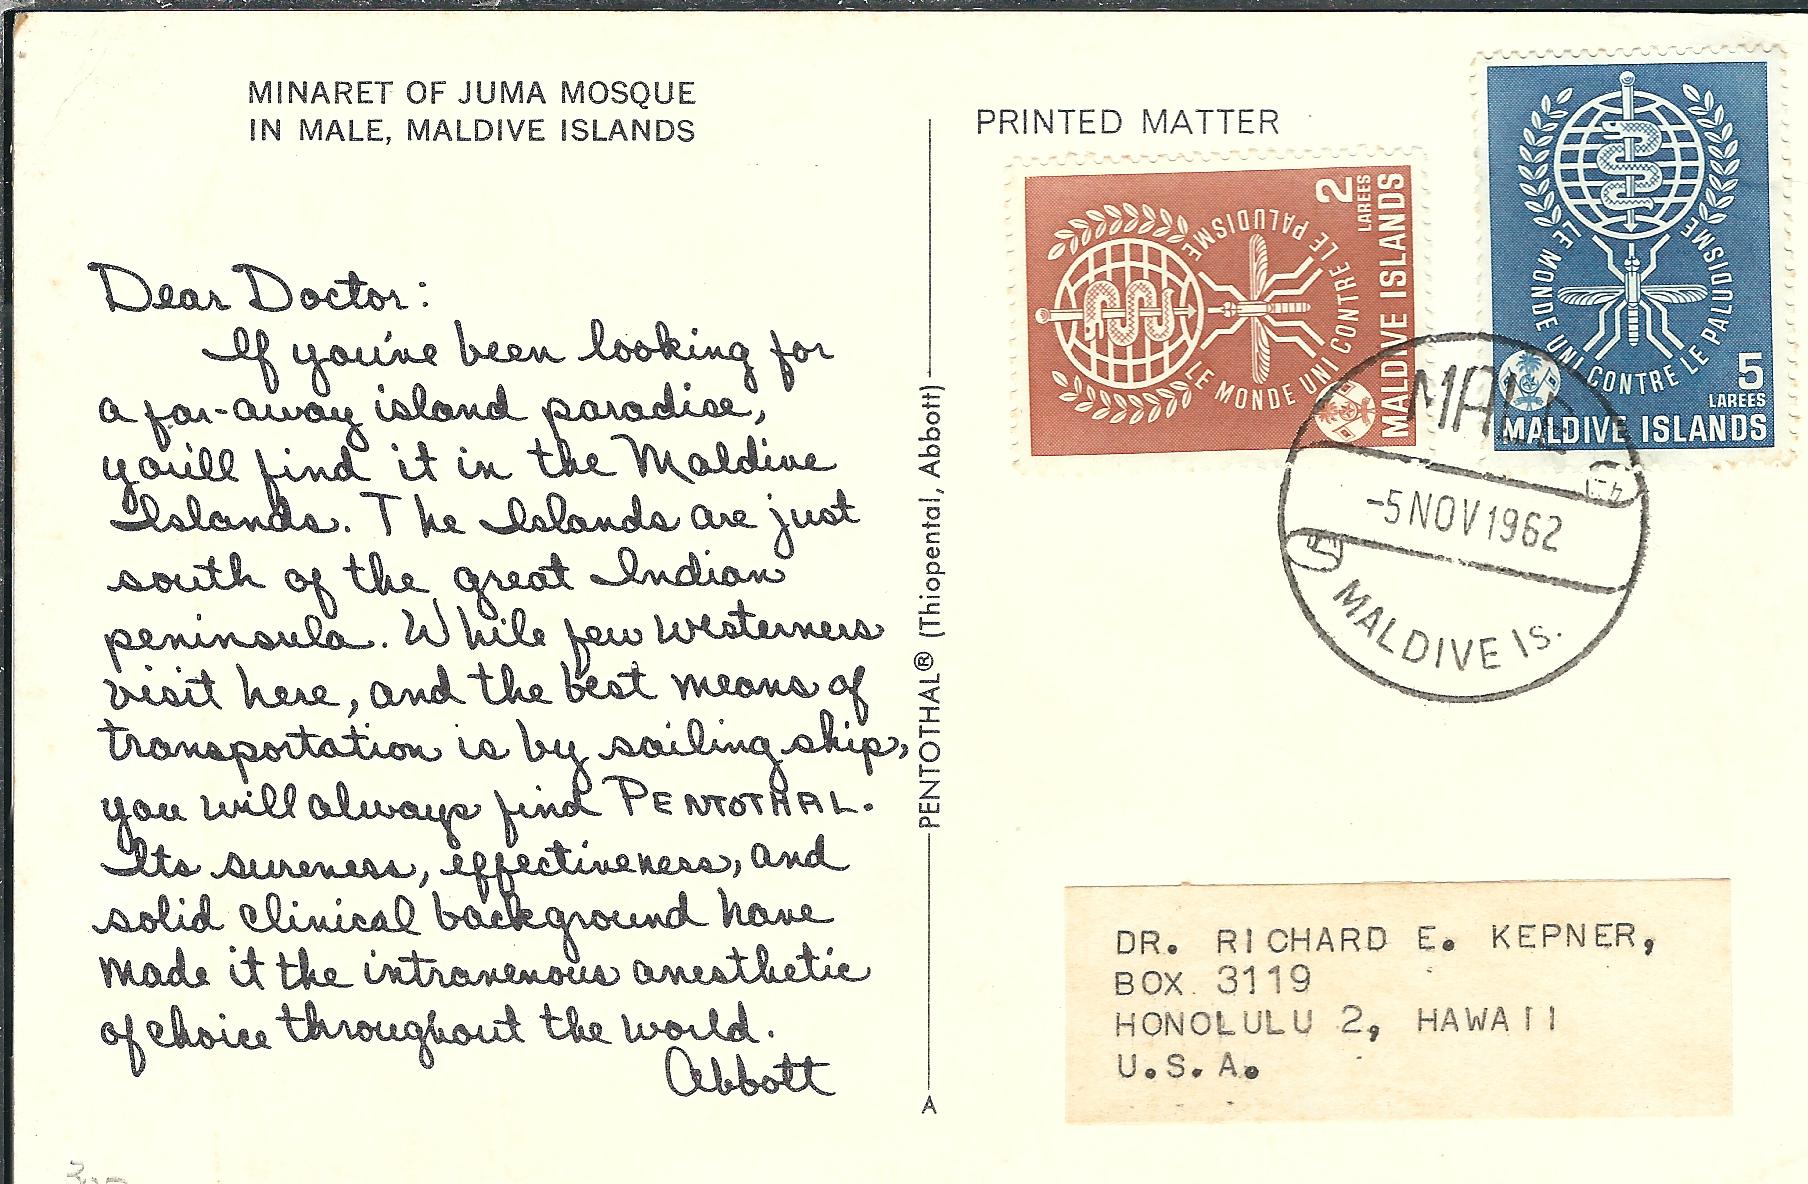 MINARET OF JUMA MOSQUE
IN MALE, MALDIVE ISLANDS
Dear Doctor:
If you've been looking for
a far-away island paradise,
you'll find it in the Maldive
Islands. The Islands are just
south of the great Indian
peninsula. While few westerners
visit here, and the best means of
transportation is by sailing ship,
you will always find PENTOTHAL.
Its sureness, effectiveness, and
solid clinical background have
made it the intravenous anesthetic
of choice throughout the world.
Abbott
PENTOTHAL® (Thiopental, Abbott)
A
PRINTED MATTER
2
LAREES
MALDIVE ISLANDS
LE MONDE UNI CONTRE LE PALUDISME
LE MONDE UNI CONTRE LE PALUDISME
5
LAREES
MALDIVE ISLANDS
MALE
-5 NOV 1962
MALDIVE Is.
DR. RICHARD E. KEPNER,
BOX 3119
HONOLULU 2, HAWAII
U.S.A.